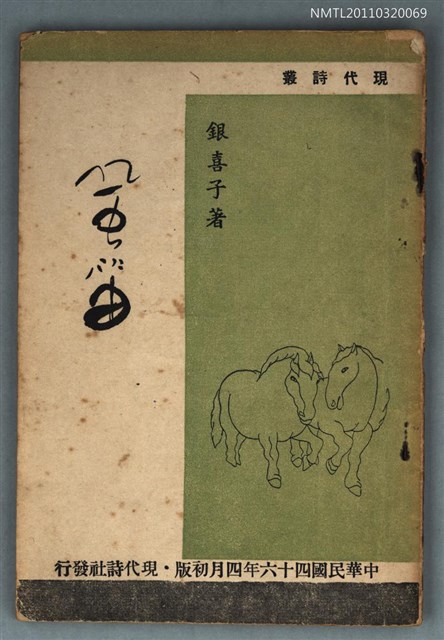 NMTL20110320069
現代詩叢
銀喜子著
中華民國四十六年四月初版・現代詩社發行